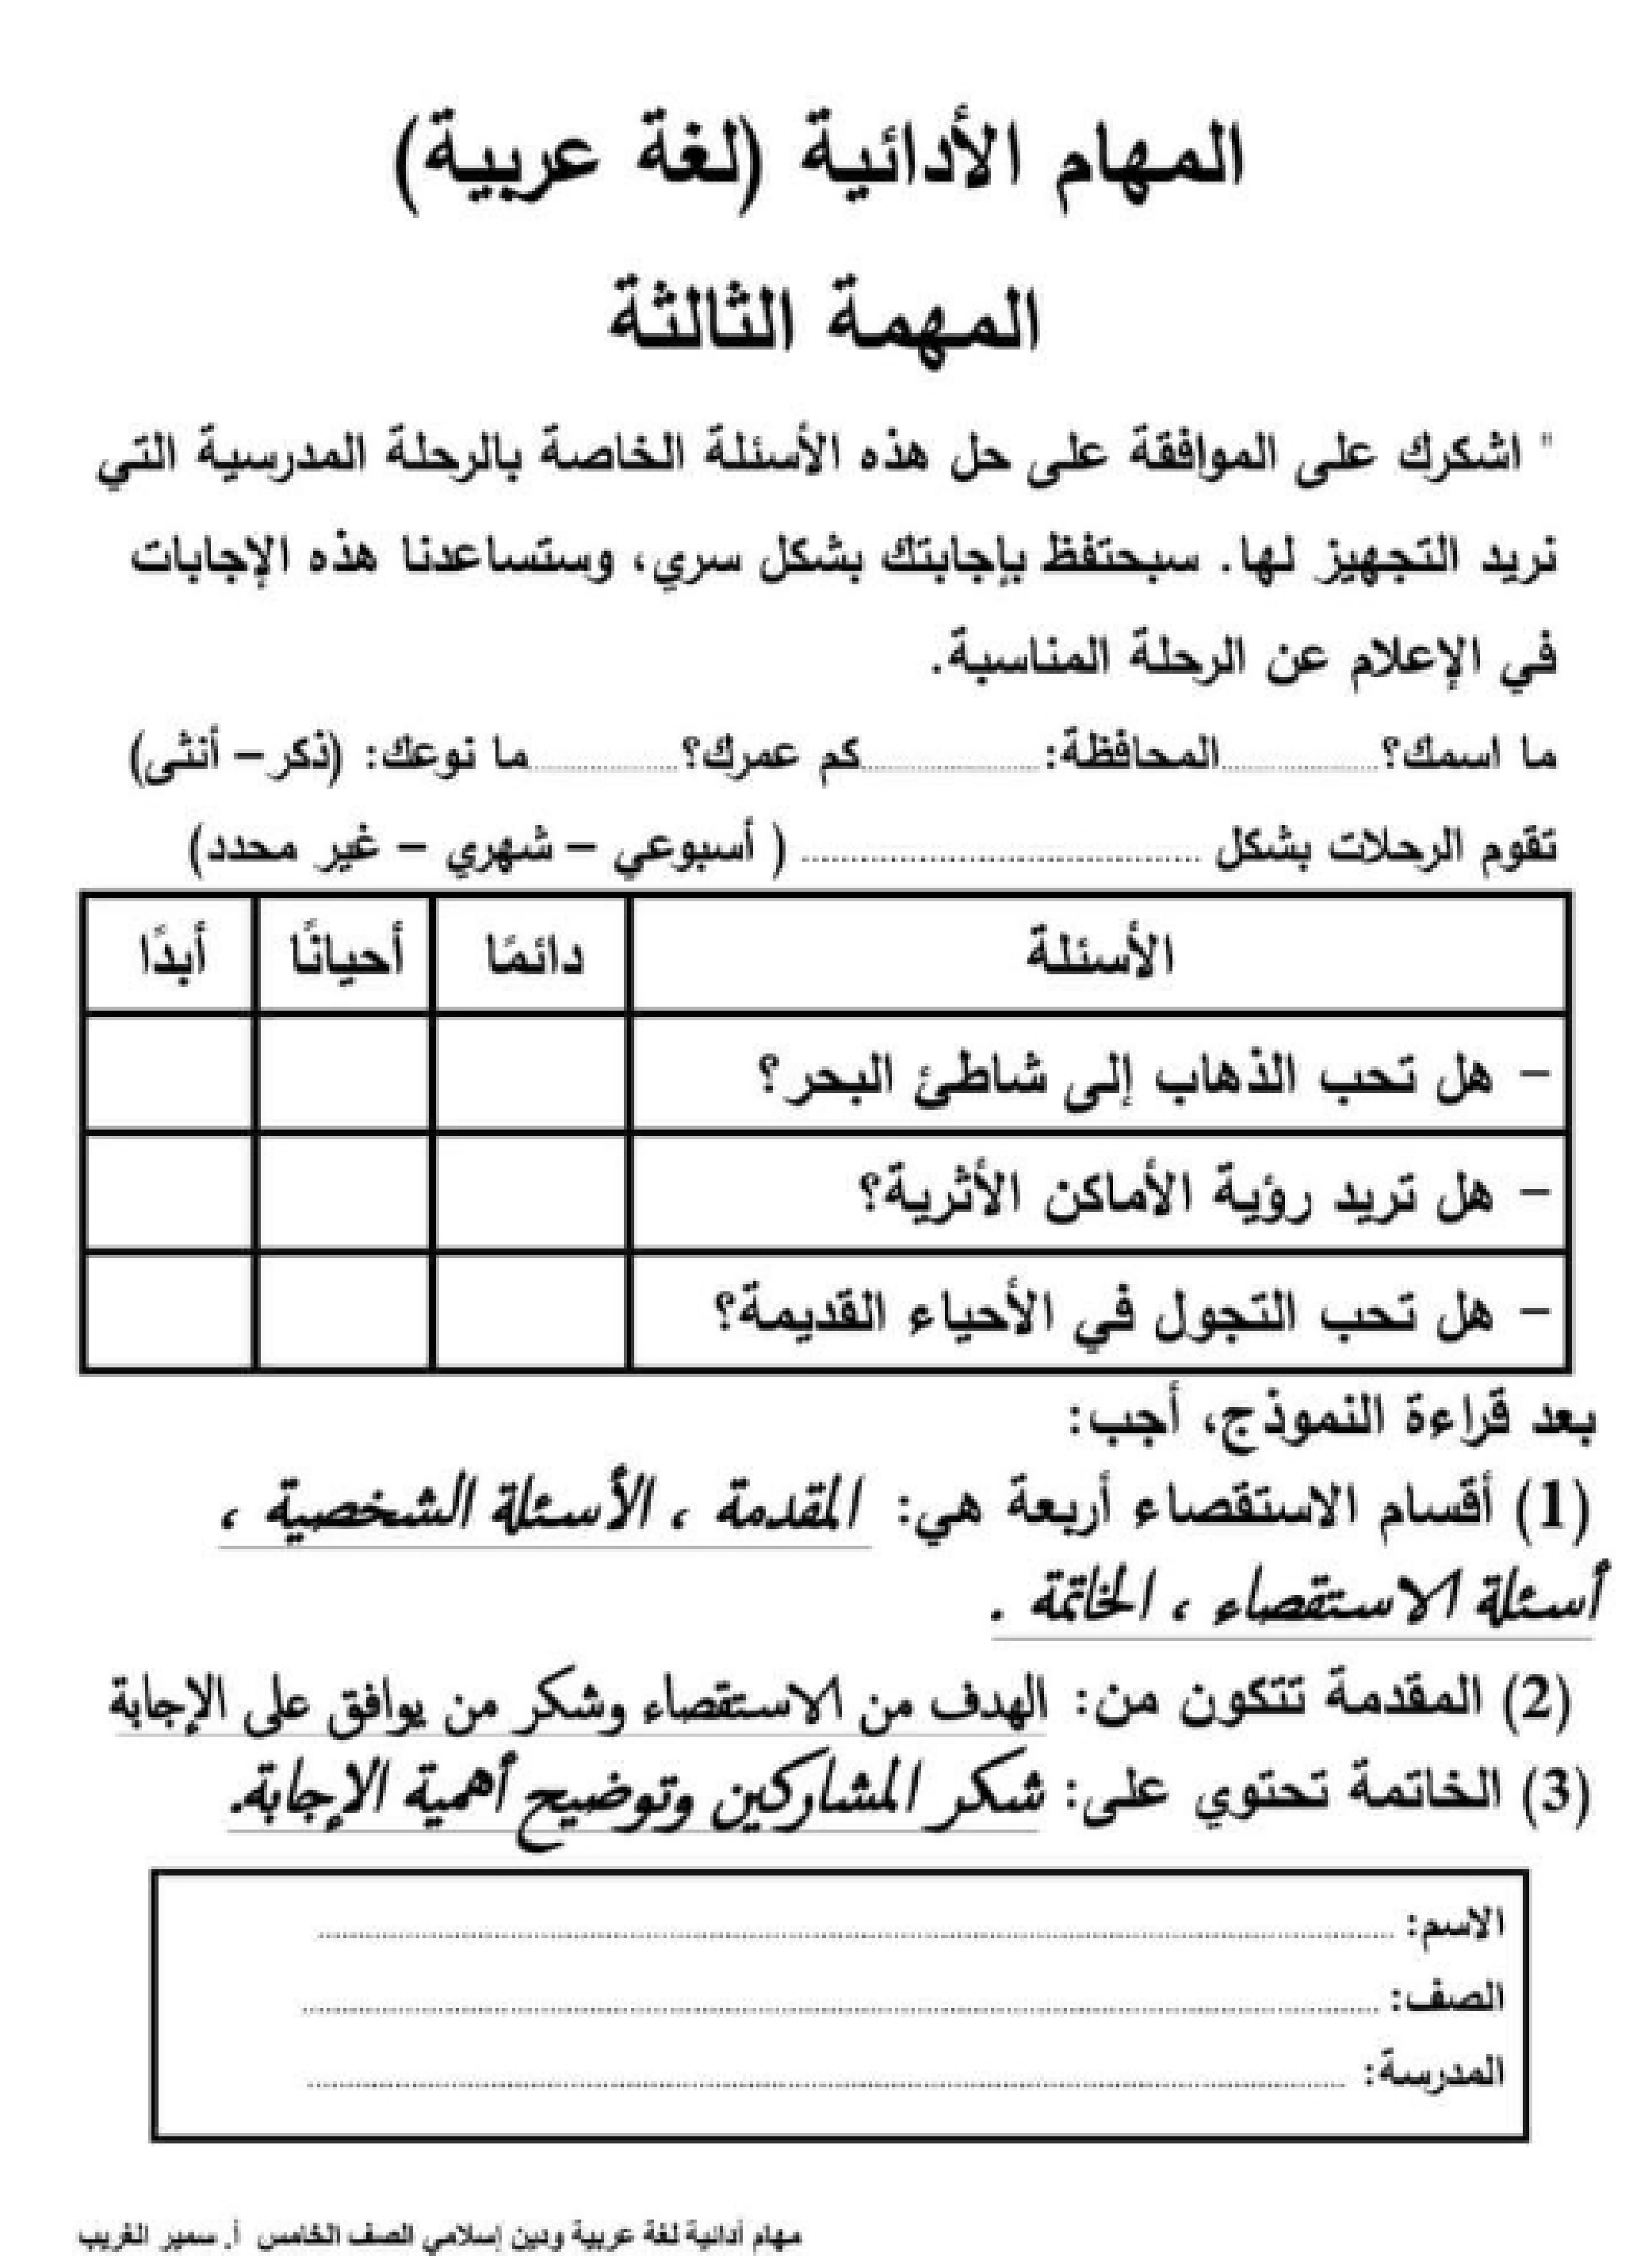 المهام الأدائية (لغة عربية)
المهمة الثالثة
" اشكرك على الموافقة على حل هذه الأسئلة الخاصة بالرحلة المدرسية التي
نريد التجهيز لها. سبحتفظ بإجابتك بشكل سري، وستساعدنا هذه الإجابات
في الإعلام عن الرحلة المناسبة.
ما اسمك؟..............المحافظة:..............كم عمرك؟..............ما نوعك: (ذكر– أنثى)
تقوم الرحلات بشكل .............................. ( أسبوعي – شهري – غير محدد)
الأسئلة دائمًا أحيانًا أبدًا
– هل تحب الذهاب إلى شاطئ البحر؟
– هل تريد رؤية الأماكن الأثرية؟
– هل تحب التجول في الأحياء القديمة؟
بعد قراءة النموذج، أجب:
(1) أقسام الاستقصاء أربعة هي: المقدمة ، الأسئلة الشخصية ،
أسئلة الاستقصاء ، الخاتمة .
(2) المقدمة تتكون من: الهدف من الاستقصاء وشكر من يوافق على الإجابة
(3) الخاتمة تحتوي على: شكر المشاركين وتوضيح أهمية الإجابة.
الاسم: ..............................
الصف: ..............................
المدرسة: ..............................
مهام أدائية لغة عربية ودين إسلامي الصف الخامس أ. سمير الغريب